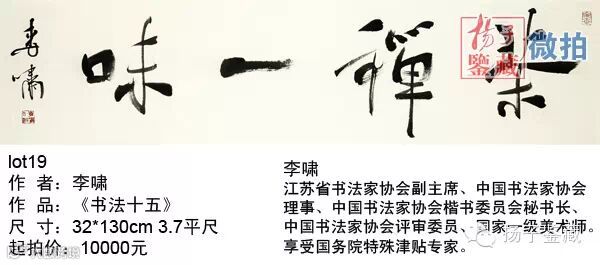 茶禪一味
李嘯
扬子
鉴藏
微拍
lot19
作 者：李啸
作 品：《书法十五》
尺 寸：32*130cm 3.7平尺
起拍价：10000元
李啸
江苏省书法家协会副主席、中国书法家协会
理事、中国书法家协会楷书委员会秘书长、
中国书法家协会评审委员、国家一级美术师。
享受国务院特殊津贴专家。
扬子鉴藏